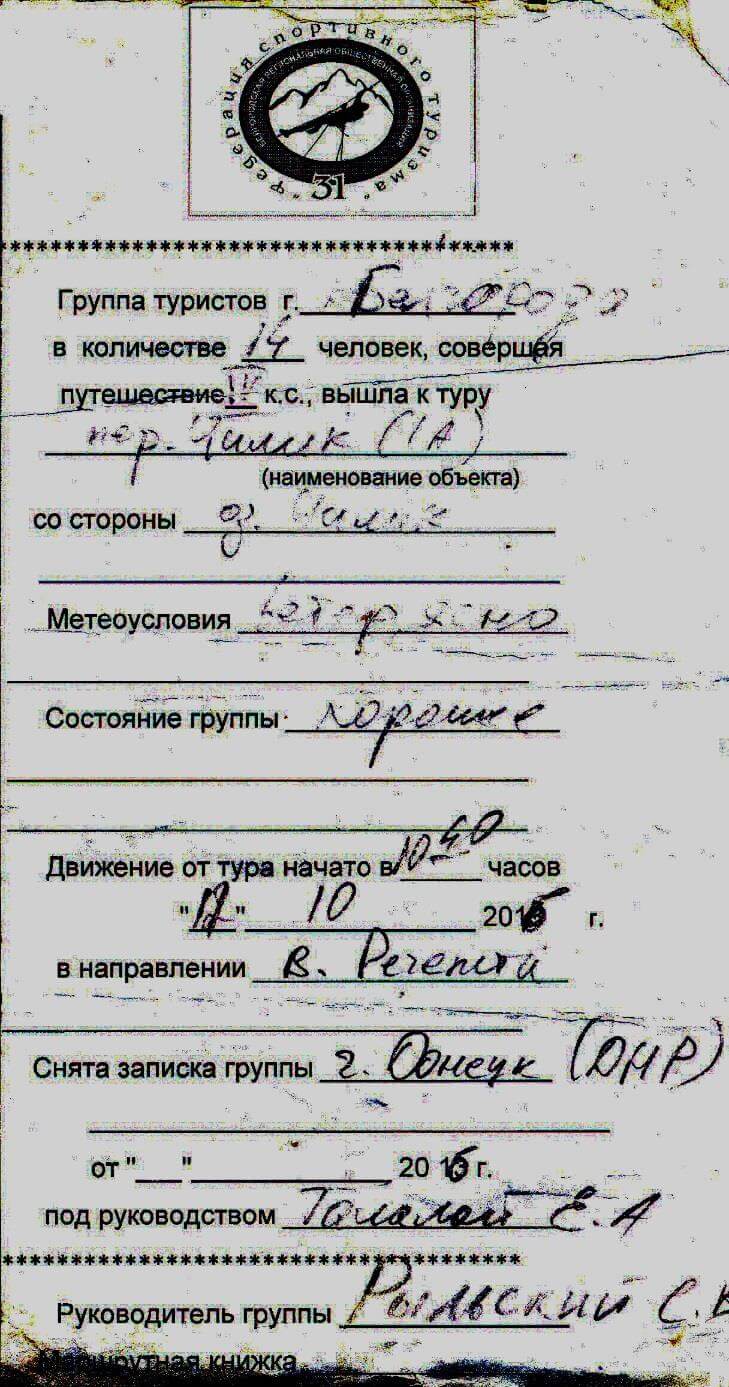 "Федерация спортивного туризма"
БЕЛГОРОДСКАЯ РЕГИОНАЛЬНАЯ ОБЩЕСТВЕННАЯ ОРГАНИЗАЦИЯ
31
****************************************
Группа туристов г. Белгорода
в количестве 14 человек, совершая
путешествие IV к.с., вышла к туру
пер. Чилик (1А)
(наименование объекта)
со стороны д. Чилик
Метеоусловия Ветер, ясно
Состояние группы хорошее
Движение от тура начато в 10 40 часов
" " 10 2015 г.
в направлении в.
Снята записка группы г. Донецк (ДНР)
от " " 2015 г.
под руководством Талалай Е.А
****************************************
Руководитель группы Рыльский С.В
Маршрутная книжка